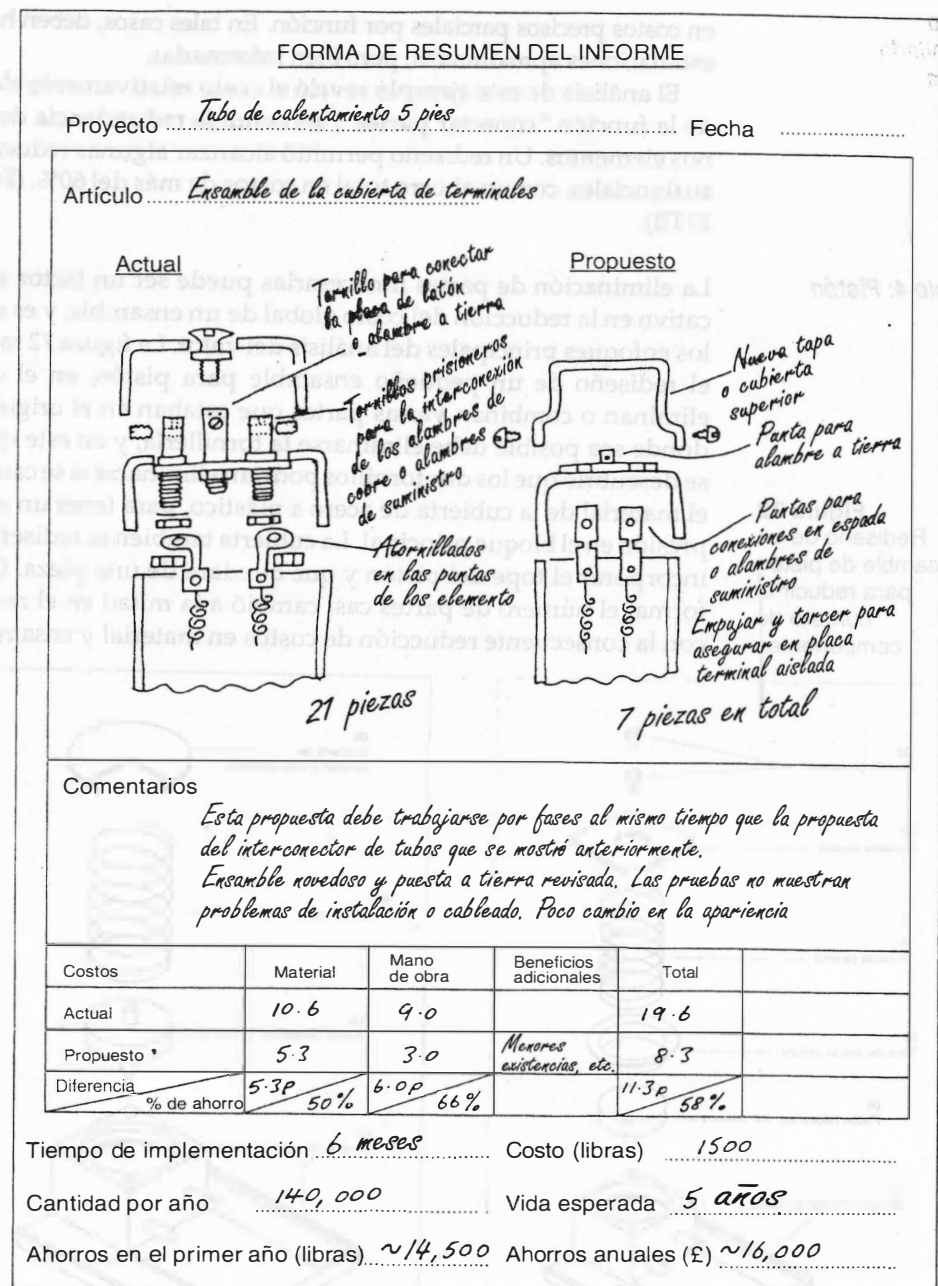 FORMA DE RESUMEN DEL INFORME
Proyecto Tubo de calentamiento 5 pies Fecha
Artículo Ensamble de la cubierta de terminales
Actual
Tornillo para conectar
la placa de latón
o alambre a tierra
Tornillos prisioneros
para la interconexión
de los alambres de
cobre o alambres
de suministro
Atornillados
en las puntas
de los elemento
21 piezas
Propuesto
Nueva tapa
o cubierta
superior
Punta para
alambre a tierra
Puntas para
conexiones en espada
alambres de
suministro
Empujar y torcer para
asegurar en placa
terminal aislada
7 piezas en total
Comentarios
Esta propuesta debe trabajarse por fases al mismo tiempo que la propuesta
del interconector de tubos que se mostró anteriormente.
Ensamble novedoso y puesta a tierra revisada. Las pruebas no muestran
problemas de instalación o cableado. Poco cambio en la apariencia
Costos Material Mano de obra Beneficios adicionales Total
Actual 10.6 9.0 19.6
Propuesto 5.3 3.0 Menores existencias, etc. 8.3
Diferencia % de ahorro 5.3p 50% 6.0p 66% 11.3p 58%
Tiempo de implementación 6 meses Costo (libras) 1500
Cantidad por año 140,000 Vida esperada 5 años
Ahorros en el primer año (libras) ~14,500 Ahorros anuales (£) ~16,000